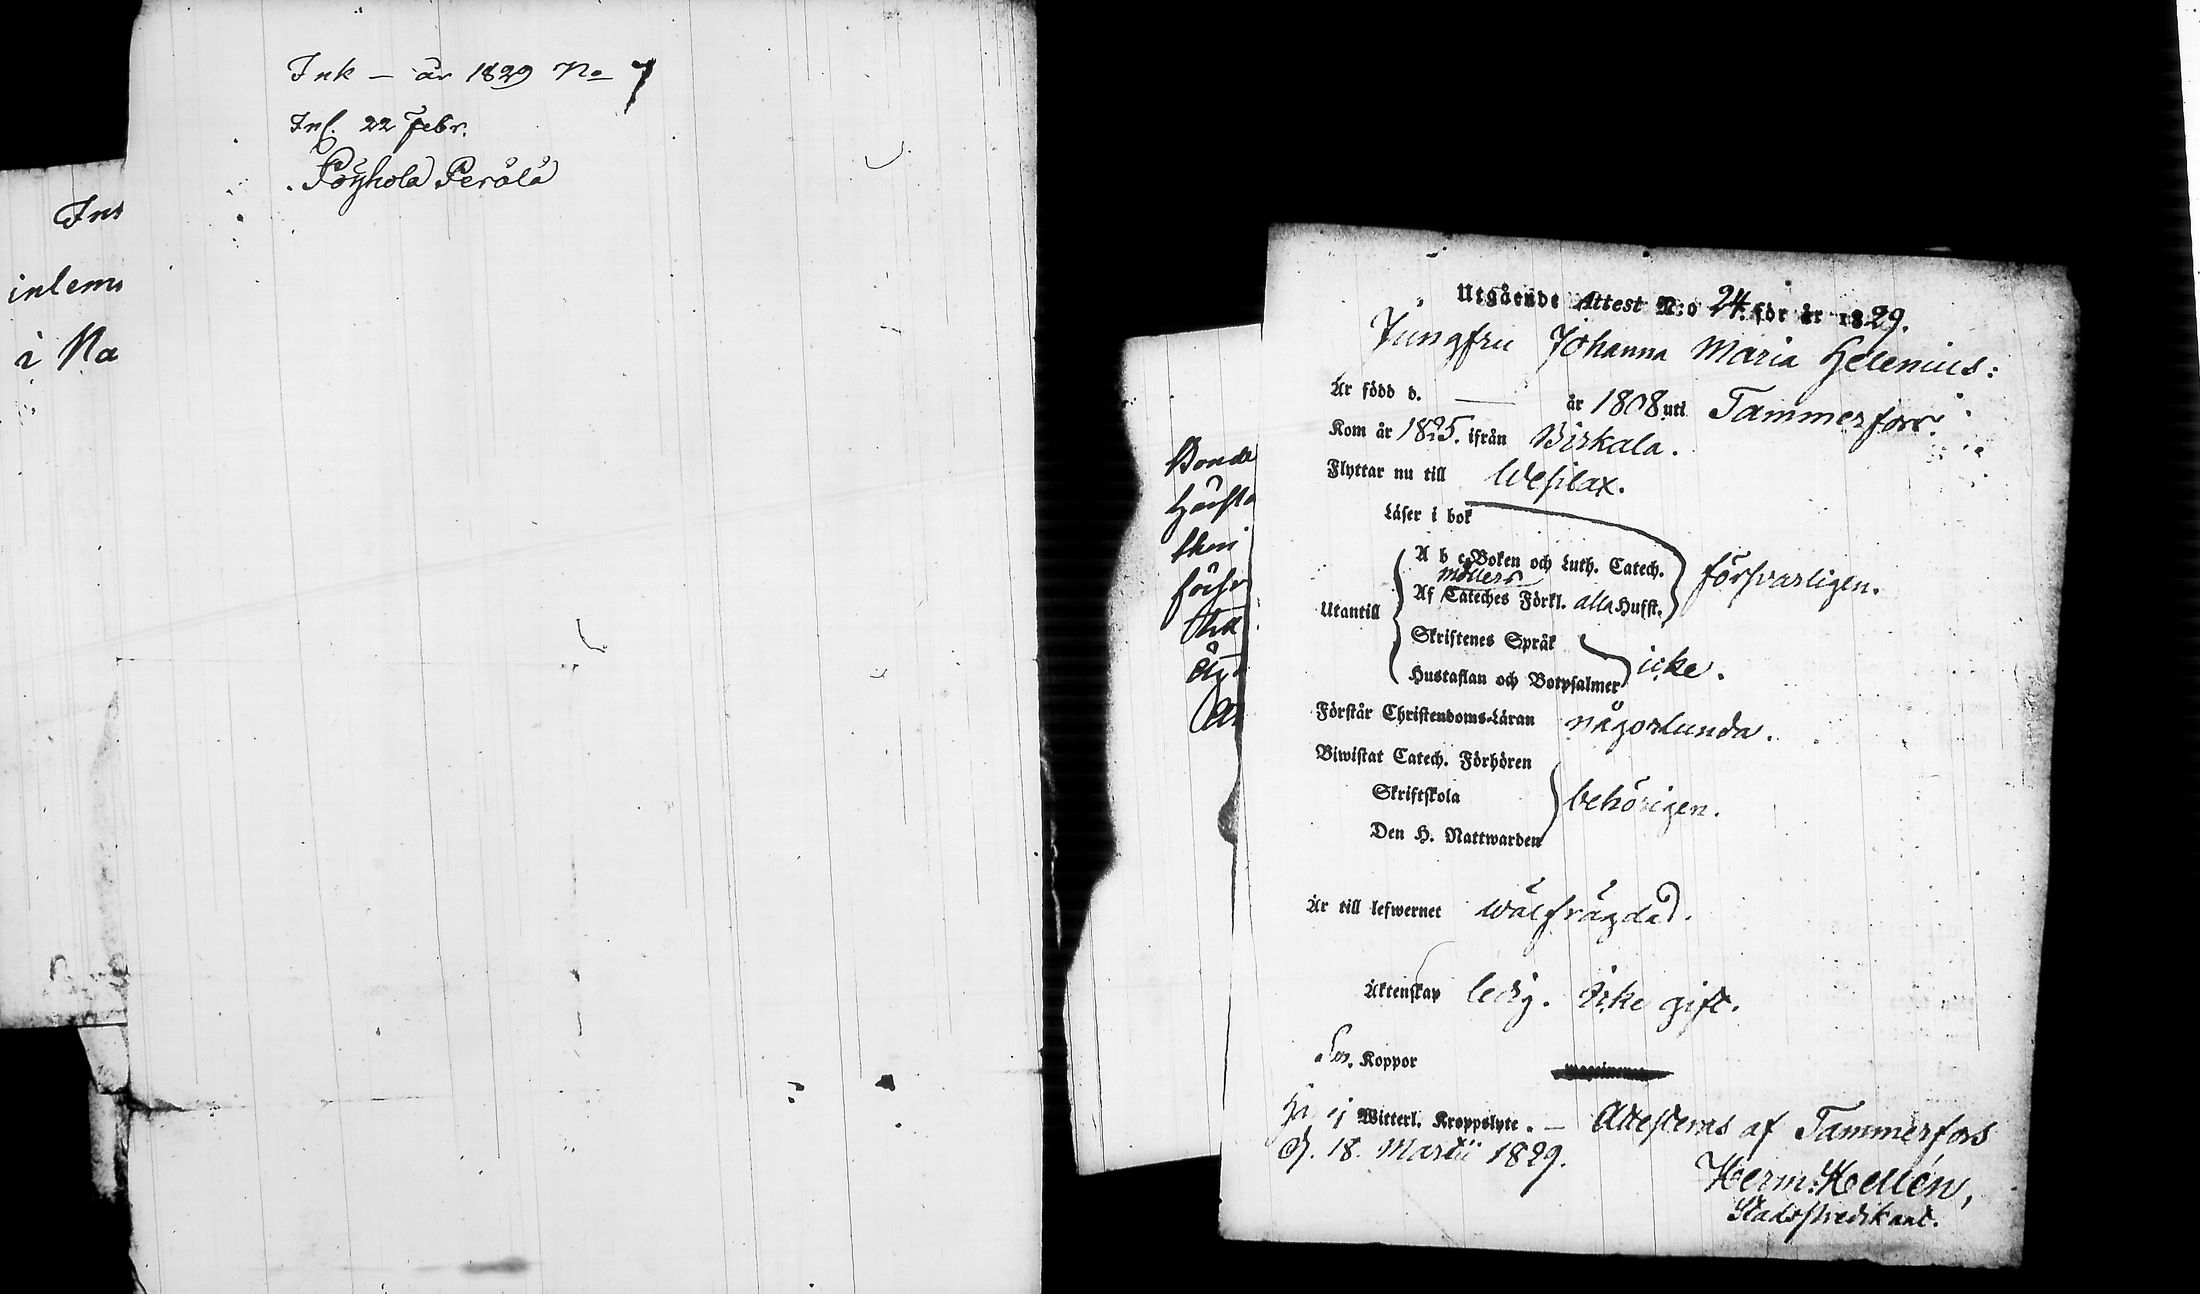 Ink – år 1829 No 7
Inl. 22 Febr.
Pöyhola Perälä
inlem
i Na
Bonde
Utgående Attest N:o 24. för år 1829.
Jungfru Johanna Maria Helenius:
Är född d. — år 1808 uti Tammerfors.
Kom år 1825. ifrån Birkala.
Flyttar nu till Wesilax.
Läser i bok
A b c-Boken och Luth. Catech.
försvarligen.
Möllers
Utantill
Af Cateches Förkl. alla Husst.
Skriftenes Språk
icke.
Hustaflan och Botpsalmer
Förstår Christendoms-Läran någorlunda.
Biwistat Catech. Förhören
Skriftskola
behörigen.
Den H. Nattwarden
Är till lefwernet wälfrägdad.
Äktenskap ledig. Icke gift.
Koppor
ej Witterl. Kroppslyte. — Attesteras af Tammerfors
d. 18. Martii 1829.
Herm: Hellén,
Stadspredikant.